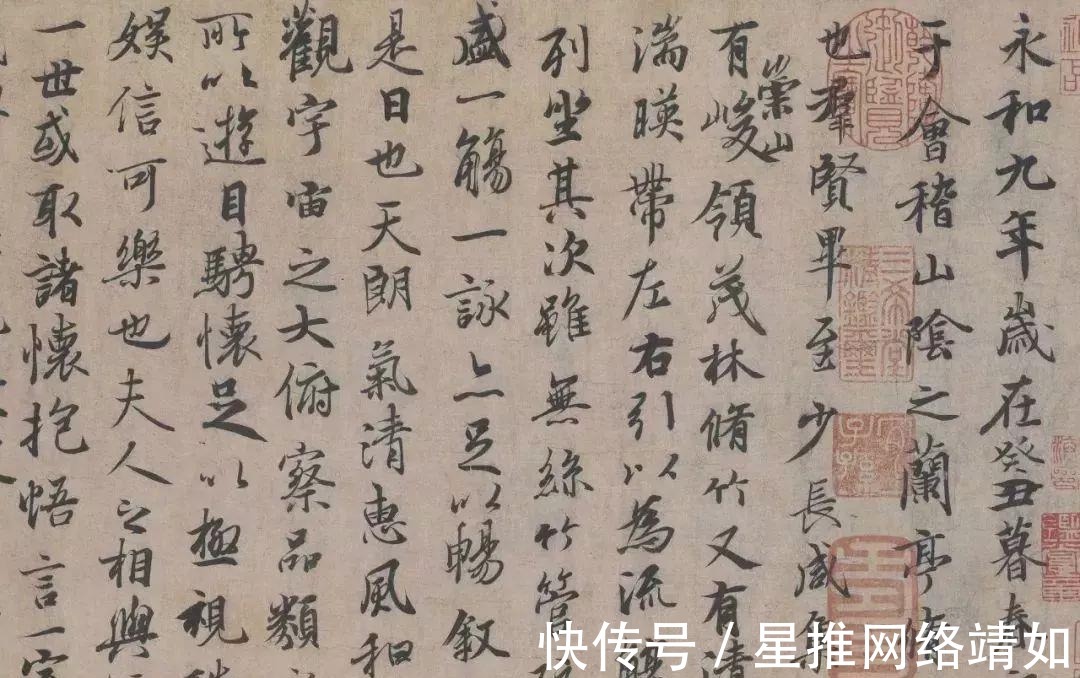 永和九年歲在癸丑暮春
于會稽山陰之蘭亭脩
也羣賢畢至少長咸
有崇山峻領茂林脩竹又有清
湍暎帶左右引以為流
列坐其次雖無絲竹管
盛一觴一詠亦足以暢敘
是日也天朗氣清惠風和
觀宇宙之大俯察品類
所以遊目騁懷足以極視
娛信可樂也夫人之相與
一世或取諸懷抱悟言一室
三希堂精鑑璽
宜子孫
快传号 / 星推网络靖如